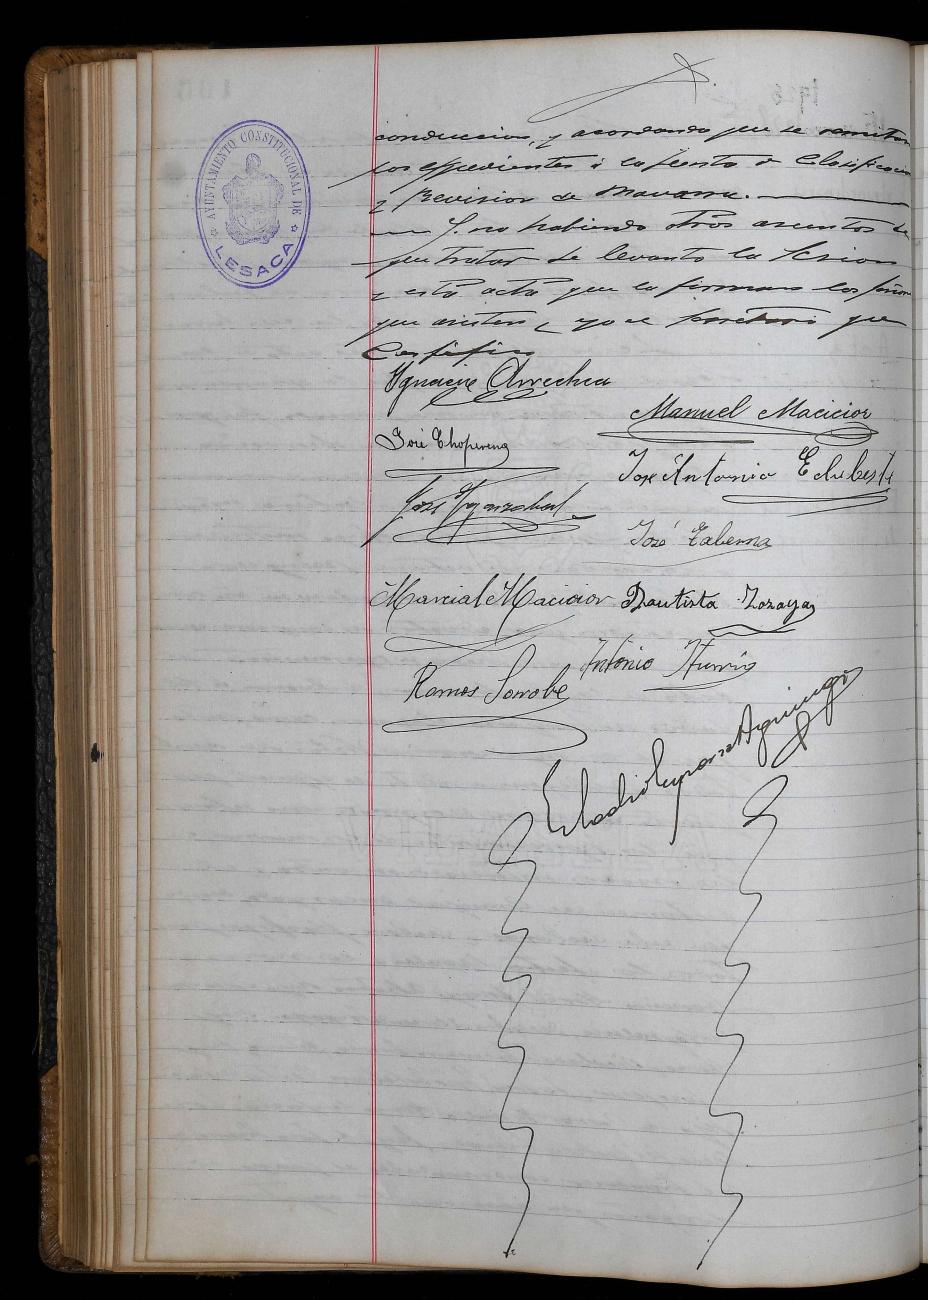 AYUNTAMIENTO CONSTITUCIONAL DE
LESACA
conduccion, y acordando que se remitan
los espedientes á la Junta de Clasificacion
y Revision de Navarra.
Y no habiendo otros asuntos de
que tratar se levantó la Sesion
y esta acta que la firman los señores
que asisten, y yo el Secretario que
Certifico
Ignacio Arrechea
Manuel Macicior
José Choperena
José Antonio Echebeste
José Yganzabal
José Taberna
Marcial Macicior Bautista Zozaya
Antonio Iturria
Ramos Sorrobe
Eladio Esparza